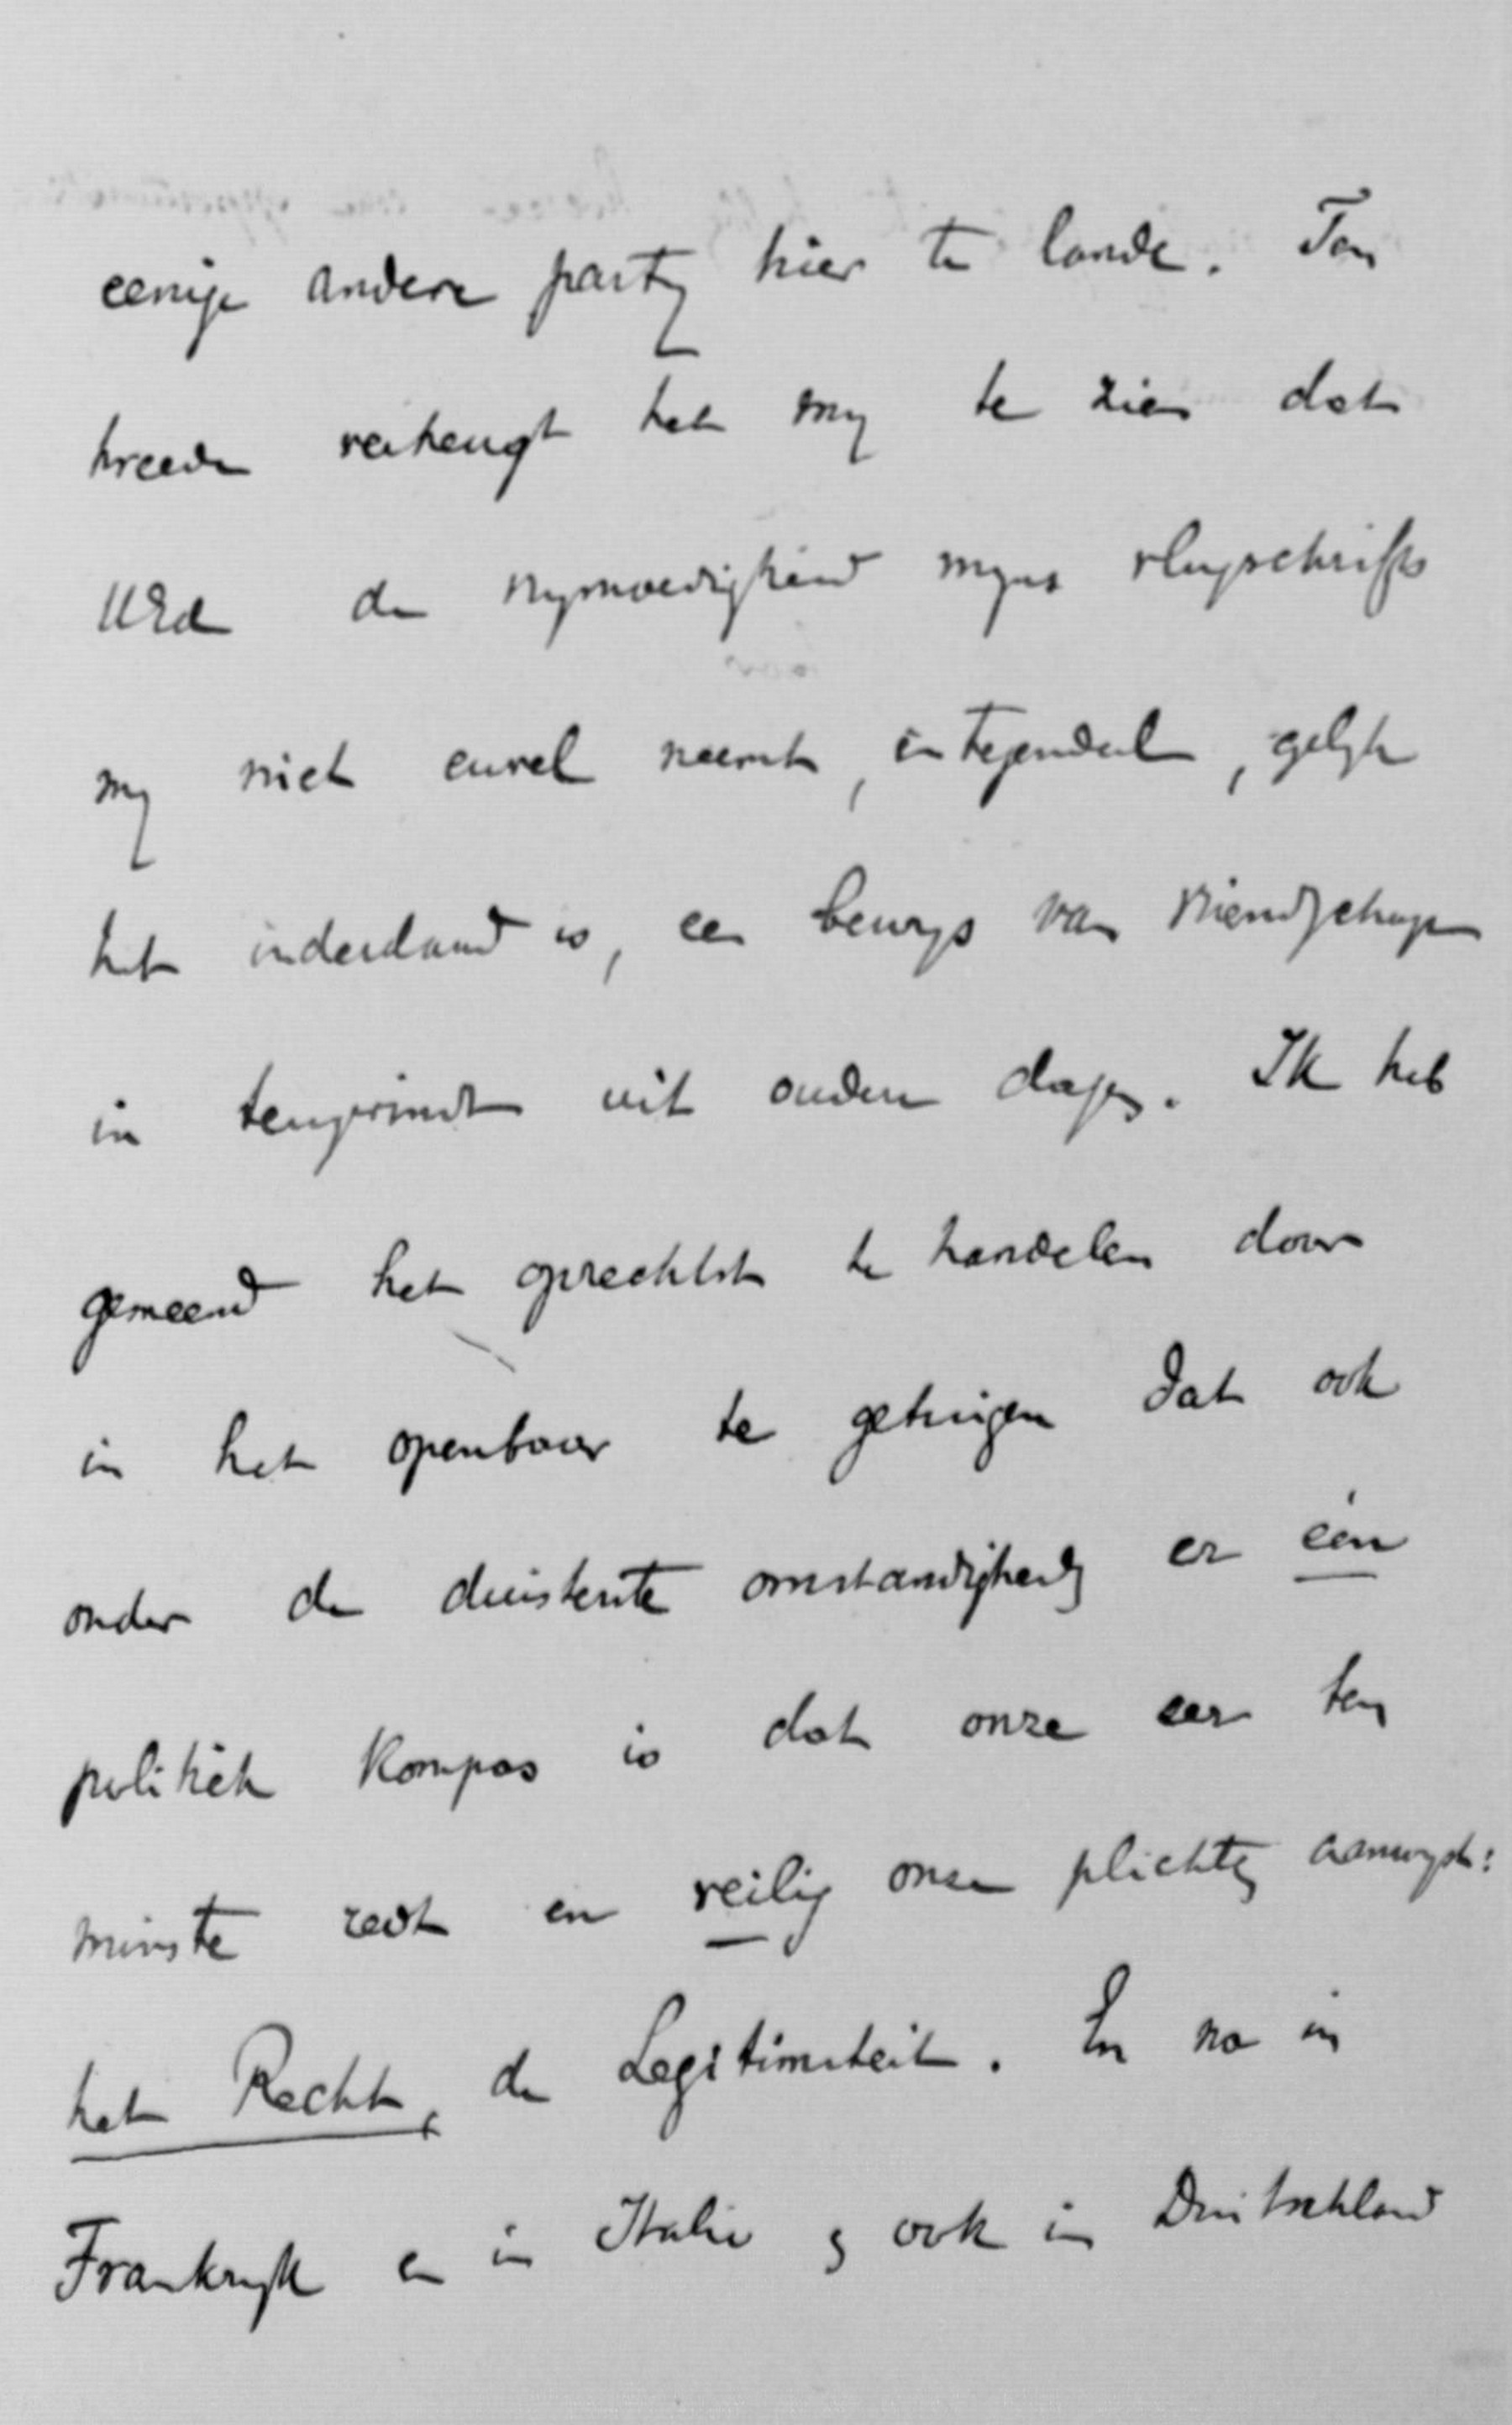 eenige andere party hier te lande. Ten
tweede verheugt het my te zien dat
UEd de vrymoedigheid myns vlugschrifts
my niet euvel neemt, integendeel, gelyk
het inderdaad is, een bewys van vriendschap
in terugvindt uit oudere dagen. Ik heb
gemeend het oprechtst te handelen door
in het openbaar te getuigen dat ook
onder de duisterste omstandigheden er één
politiek kompas is dat onze eer ten
minste redt en veilig onze plichten aanwyst:
het Recht, de Legitimiteit. En na in
Frankryk en in Italie en ook in Duitschland